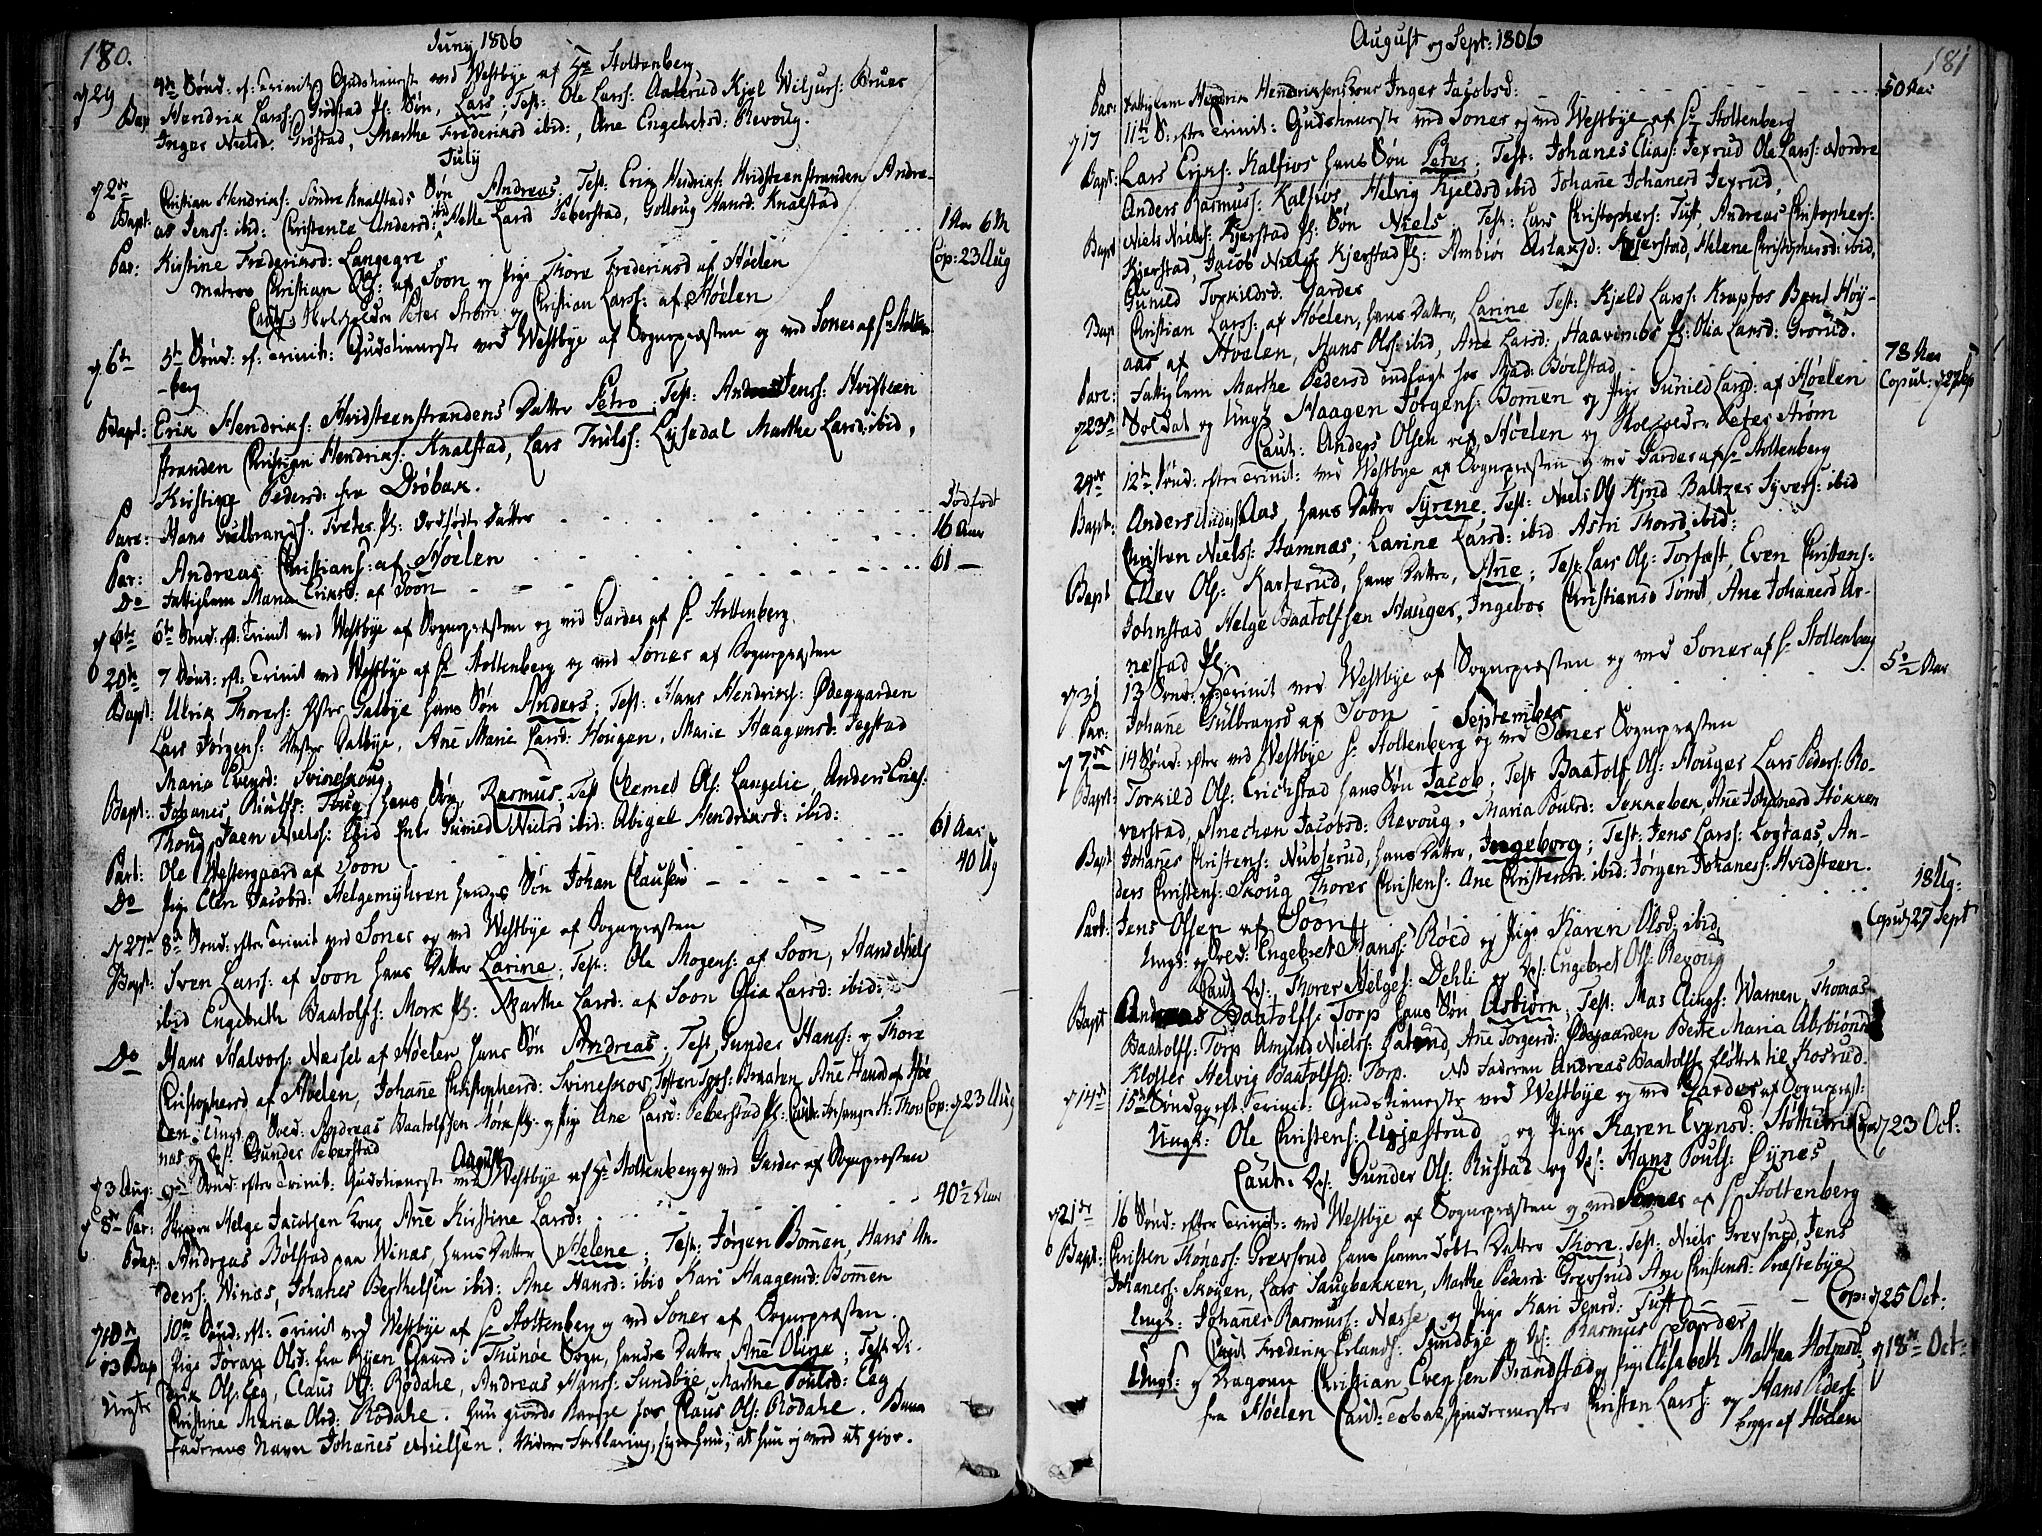 180.
Juny 1806
4de Sønd: ef: Trinit: Gudstieneste ved Westbye af Hr Stoltenberg
d 29
Bap Hendrik Larss: Grøstad Pl: Søn, Lars, Test: Ole Larss: Aakerud Kjel Wiljurs: Bruer
Inger Nielsd: Grøstad, Marthe Frederiksd ibid:, Ane Engebretsd: Revoug.
July
d 2de Christian Hendriks: Søndre Knalstads Søn Andreas, Test: Erik Hendriks: Hvidsteenstranden, Andre-
Bapt: as Jenss: ibid: Christence Andersd: ibid Helle Larsd Peberstad, Golloug Hansd: Knalstad
Par: Kirstine Frederiksd: Langegre 1 Aar 6 M
Matros Christian Ols: af Soon og Pige Thore Frederiksd af Høelen Cop: 23 Aug
Caut: Peter Strøm og Christian Larss: af Høelen
d 6te 5te Sønd: ef: Trinit: Gudstieneste ved Westbye af Sognepræsten og ved Soner af Hr Stolten-
-berg
Bapt: Erik Hendriks: Hvidsteenstrandens Datter Petro, Test: Jenss: Hvidsteen
stranden Christian Hendriks: Knalstad, Lars Trulss: Lysedal Marthe Larsd: ibid,
Kirstine Pedersd: fra Drøbak.
Pare: Hans Gulbrands: Pl: Dødfødte Datter Dødfødt
Par: Andreas Christians: af Høelen 16 Aar
Do Fattiglem Maria Eriksd: af Soon 61 —
6te Sønd: eft: Trinit ved Westbye af Sognepræsten og ved Garder af Hr Stoltenberg
20de 7 Sønd: eft: Trinit ved Westbye af Hr Stoltenberg og ved Soner af Sognepræsten
Bapt: Ulrik Thorers: Øster Dalbye hans Søn Anders; Test: Hans Hendriks: Ødegaarden
Lars Jørgens: Wester Dalbye, Ane Marie Larsd: Hougen, Marie Haagensd: Jegstad
Maria Evensd: Svineskoug
Bapt: Johanes hans Søn, Rasmus, Test Clemet Ols: Langelie, Anders Eriks:
Thoug, Nielss: Ibid Enke Gunild Nielsd ibid: Abigel Hendriksd: ibid:
Part: Ole Westergaard af Soon 61 Aar
Do Pige Elen Jacobsd: Helgemyhren hendes Søn Johan Clausen 40 Ug
d 27de 8de Sønd: efter Trinit ved Soner og ved Westbye af Sognepræsten
Bapt: Sven Larss: af Soon hans Datter Larine, Test: Ole Mogens: af Soon, Hans Niels
ibid Engebreth Baatolfs: Mork Pl: Marthe Larsd: af Soon Olia Larsd: ibid:
Do Hans Halvors: Nessel af Høelen hans Søn Andreas, Test: Gunder Hans: Thore
Christophersd af Høelen, Johane Christophersd: Svineskov, Braaten, Ane Hansd af Høe
len; Ungk: Sold: Andreas Baatolfsen og Pige Ane Larsd: Peberstad Pl: Caut: H: Thos Cop: d 23 Aug
nas og Gunder Peberstad
August
d 3 Aug: 9de Sønd: efter Trinit: Gudstieneste ved Westbye af Hr Stoltenberg og ved Garder af Sognepræsten
d 8de Par: Skipper Helge Jacobsen Kone Ane Kirstine Larsd: 40½ Aar
Bap: Andreas Bølstad paa Winas, hans Datter Helene; Test: Jørgen Bommen, Hans An-
ders: Winæs, Johanes Berthelsen ibid: Ane Hansd: ibid Kari Haagensd: Bommen
d 10de 10de Sønd: eft: Trinit ved Westbye af Hr Stoltenberg og ved Soner af Sognepræsten.
13 Bap Pige Joran Olsd: fra Ryen Gaard i Thunøe Sogn, hendes Datter Ane Oline; Test: Di-
Uægte drik Ols: Eeg, Claus Ols: Rødahe, Andreas Hanss: Sundbye, Marthe Poulsd: Eeg
Christine Maria Olsd: Rødahe. hun giorde Barsel hos Claus Ols: Rødahe. Barne
faderens Navn Johanes Nielsen. Videre Forklaring, siger hun, at hun ej veed at give.
181
August og Sept: 1806
Par: Fattiglem Hendrik Hendriksens Kone Inger Jacobsd: 50 Aar
d 17 11te S: efter Trinit: Gudstieneste ved Soner og ved Westbye af Hr Stoltenberg
Bapt: Lars Eriks: Kalsiøs hans Søn Peter, Test: Johanes Elias: Jexrud Ole Larss: Nordre
Anders Rasmus: Kalsiøs, Helvig Kjeldsd ibid Johane Johanesd Jexrud,
Bapt Niels Niels: Kjerstad Pl: Søn Niels, Test: Lars Christophers: Tuft, Andreas Christophers:
Kjerstad, Jacob Niels Kjerstad Pl: Ambiør Aslaksd: Kjerstad, Helene Christophersd: ibid,
Gunild Torkildsd. Garder
Bap Christian Larss: af Høelen, hans Datter, Larine Test: Kjeld Larss: Krapfos Bent Høy-
aas af Hoelen, Hans Ols: ibid, Ane Larsd: Haavimbs Pl: Olia Larsd: Grorud.
Pare: Fattiglem Marthe Pedersd indlagt hos Mad: Boelstad 78 Aar
d 23de Soldat og Ungk Haagen Jørgens: Bommen og Pige Gunild Larsd: af Høelen Copul: d 27 Sep
Caut: Anders Olsen af Høelen og Peter Strøm
24de 12te Sønd: efter Trinit: ved Westbye af Sognepræsten og ved Garder af Hr Stoltenberg
Bapt: Anders Aas hans Datter Syrene, Test: Niels Ols Kjnd Baltzer Syvers: ibid
Christen Niels: Stamnæs, Larine Larsd: ibid Astri Thorsd: ibid:
Bapt Elev Ols: Karterud, hans Datter, Ane; Test: Lars Ols: Torfæst, Even Christens:
Johnstad Helge Baatolfsen Hauger, Ingebor Christiansd Tømt, Ane Johanesd Ar-
nestad Pl:
d 31 13 Sønd: eft: Trinit ved Westbye af Sognepræsten og ved Soner af Hr Stoltenberg
Par: Johane Gulbransd af Soon 5½ Aar
September
d 7de 14 Sønd: efter ved Westbye Hr Stoltenberg og ved Soner Sognepræsten
Bapt: Torkild Ols: Erichstad hans Søn Jacob, Test Baatolf Ols: Houger Lars Peders: Ro-
verstad, Anechen Jacobsd: Revoug, Maria Poulsd: Sekkebek, Ane Johanesd Støkken
Bapt Johanes Christens: Nubserud, hans Datter, Ingeborg; Test: Jens Larss: Logtaas, An-
ders Christens: Skoug Thorer Christens: Ane Christensd: ibid: Jørgen Johaness: Hvidsteen.
Part: Jens Olsen af Soon 18 Ug:
Ungk: og Sold: Engebret Hanss: Røed og Pige Karen Olsd: ibid Copul 27 Sept
Caut Thorer Helges: Dehli og Engebret Ols: Revoug
Bapt Andreas Baatolfs: Torp hans Søn Asbiørn, Test: Mas Elings: Wamen, Thomas
Baatolfs: Torp Amund Niels: Ane Torgersd: Ødegaarden Berte Maria Absbiønsd
Kloster Helvig Baatolfsd: Torp. NB Faderen Andreas Baatolfs: fløttet til Kosrud.
d 14de 15de Søndg eft: Trinit: Gudstieneste ved Westbye og ved Garder af Sognepræst:
Ungk: Ole Christens: Ugjestrud og Pige Karen Evensd: Støttum Cop: d 23 Oct:
Caut. Gunder Ols: Rustad og Hans Pouls: Øynes
d 21de 16 Sønd: efter Trinit: ved Westbye af Sognepræsten og ved Soner af Hr Stoltenberg
Bapt: Christen Thønæs: Grevsrud hans hiemedøbt Datter Thore, Test: Niels Grevsrud, Jens
Johaness: Skogen, Lars Saugbakken, Marthe Pedersd: Grevsrud Ane Christensd: Præstebye
Ungk: Johanes Rasmus: Næsse og Pige Kari Jensd: Tuft Cop: d 25 Oct:
Caut Frederik Erlands: Sundbye og Rasmus Garder
Ungk: og Dragoun Christian Evensen Brandstad og Pige Elisabeth Mathea Holmsd: d 18de Oct:
fra Høelen Caut: Tobakspindermester Christen Larss: og Hans Peders:
begge af Høelen